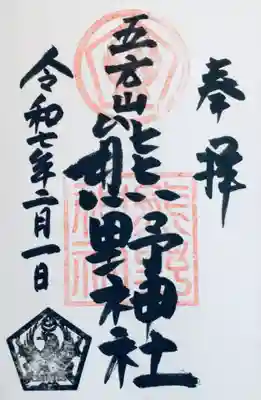 奉拝
五方山熊野神社
令和七年二月一日